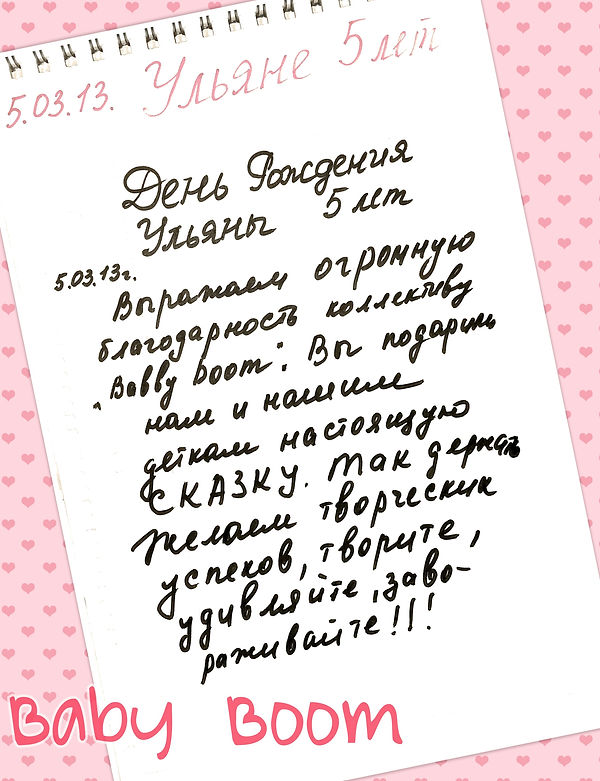 5.03.13. Ульяне 5 лет
День Рождения
Ульяны 5 лет
5.03.13г.
Выражаем огромную
благодарность коллективу
"Babby boom". Вы подарили
нам и нашим
деткам настоящую
СКАЗКУ. Так держать
Желаем творческих
успехов, творите,
удивляйте, заво-
раживайте!!!
Baby Boom